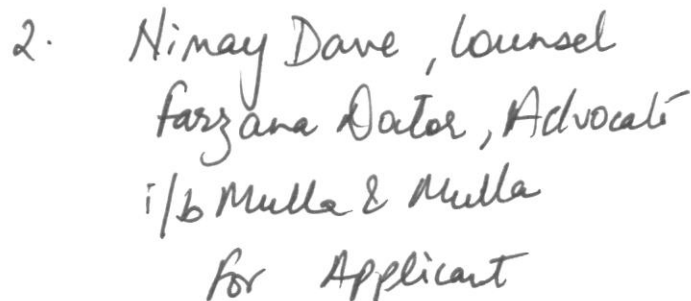 2. Nimay Dave, Counsel
Farzana Dator, Advocate
i/b Mulla & Mulla
For Applicant